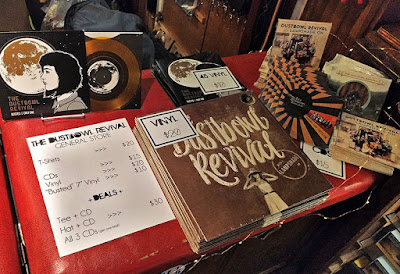 THE
DUSTBOWL
REVIVAL
THE DUSTBOWL REVIVAL
GENERAL STORE
T-Shirts >>> $20
CDs >>> $15
Vinyl $20
"Busted" 7" Vinyl >>> $10
- DEALS -
Tee + CD
Hat + CD >>> $30
All 3 CDs
VINYL
$20
Dustbowl
Revival
45 VINYL
DUSTBOWL REVIVAL